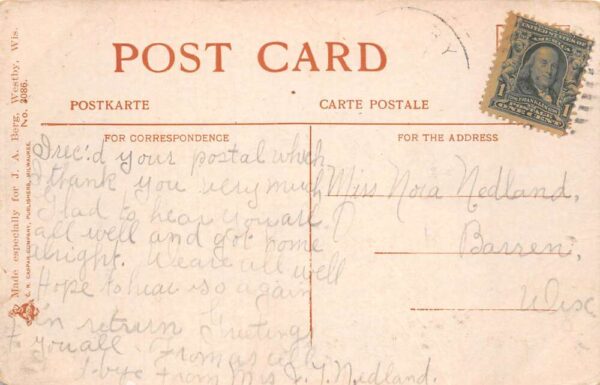 POST CARD
POSTKARTE
CARTE POSTALE
FOR CORRESPONDENCE
FOR THE ADDRESS
Made especially for J. A. Berg, Westby, Wis.
No. 3086.
FRANKLIN
1 1
I rec'd your postal which
thank you very much
Glad to hear you are
all well and got home
alright. We are all well
Hope to hear so again
In return Greetings
to you all. From us all
bye From Mrs J. T. Nedland.
Miss Nora Nedland,
Barren,
Wisc